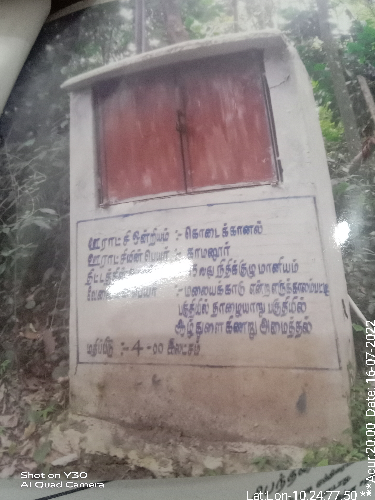 ஊராட்சி ஒன்றியம் :- கொடைக்கானல்
ஊராட்சியின் பெயர் :- காமனூர்
திட்டத்தின் நிதிக்குழு மானியம்
:- மலையக்காடு
பகுதியில் தாழையாறு பகுதியில்
ஆழ்துளை கிணறு அமைத்தல்
மதிப்பீடு :- 4-00 இலட்சம்
Shot on Y30
AI Quad Camera
Lat:Lon-10.24 77.50
Acur 20.00 Date: 16-07-2022